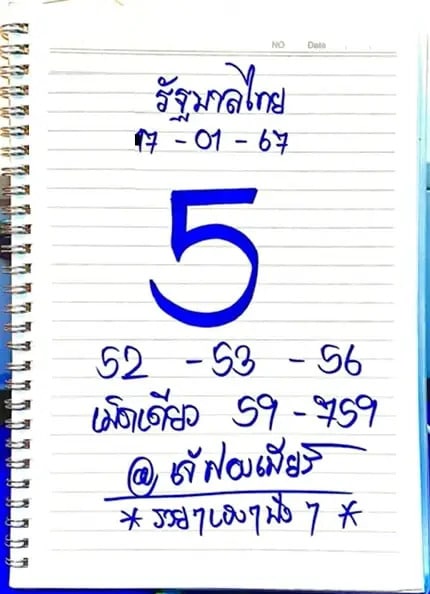 NO Date
รัฐบาลไทย
17 - 01 - 67
5
52 - 53 - 56
เม็ดเดียว 59 - 759
@ เจ๊ฟองเบียร์
* รวยๆเฮงๆปังๆ *